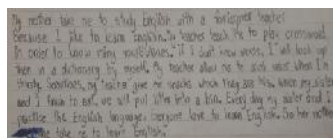 My mother take me to study English with a foreigner teacher
because I like to learn English. My teacher teach me to play crossword
In order to know many vocabularies. If I don't know words, I will look up
them in a dictionary by myself. My teacher allow me to drink water when I'm
thirsty. Sometimes, my teacher give me snacks which they are his. When my sister
and I finish to eat, we will put litter into a bin. Every day my sister and I
practise the English language. everyone love to learn English. So her mother
take me to learn English.